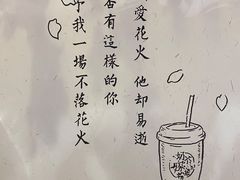 愛花火 他却易逝
否有這樣的你
我一場不落花火
奶